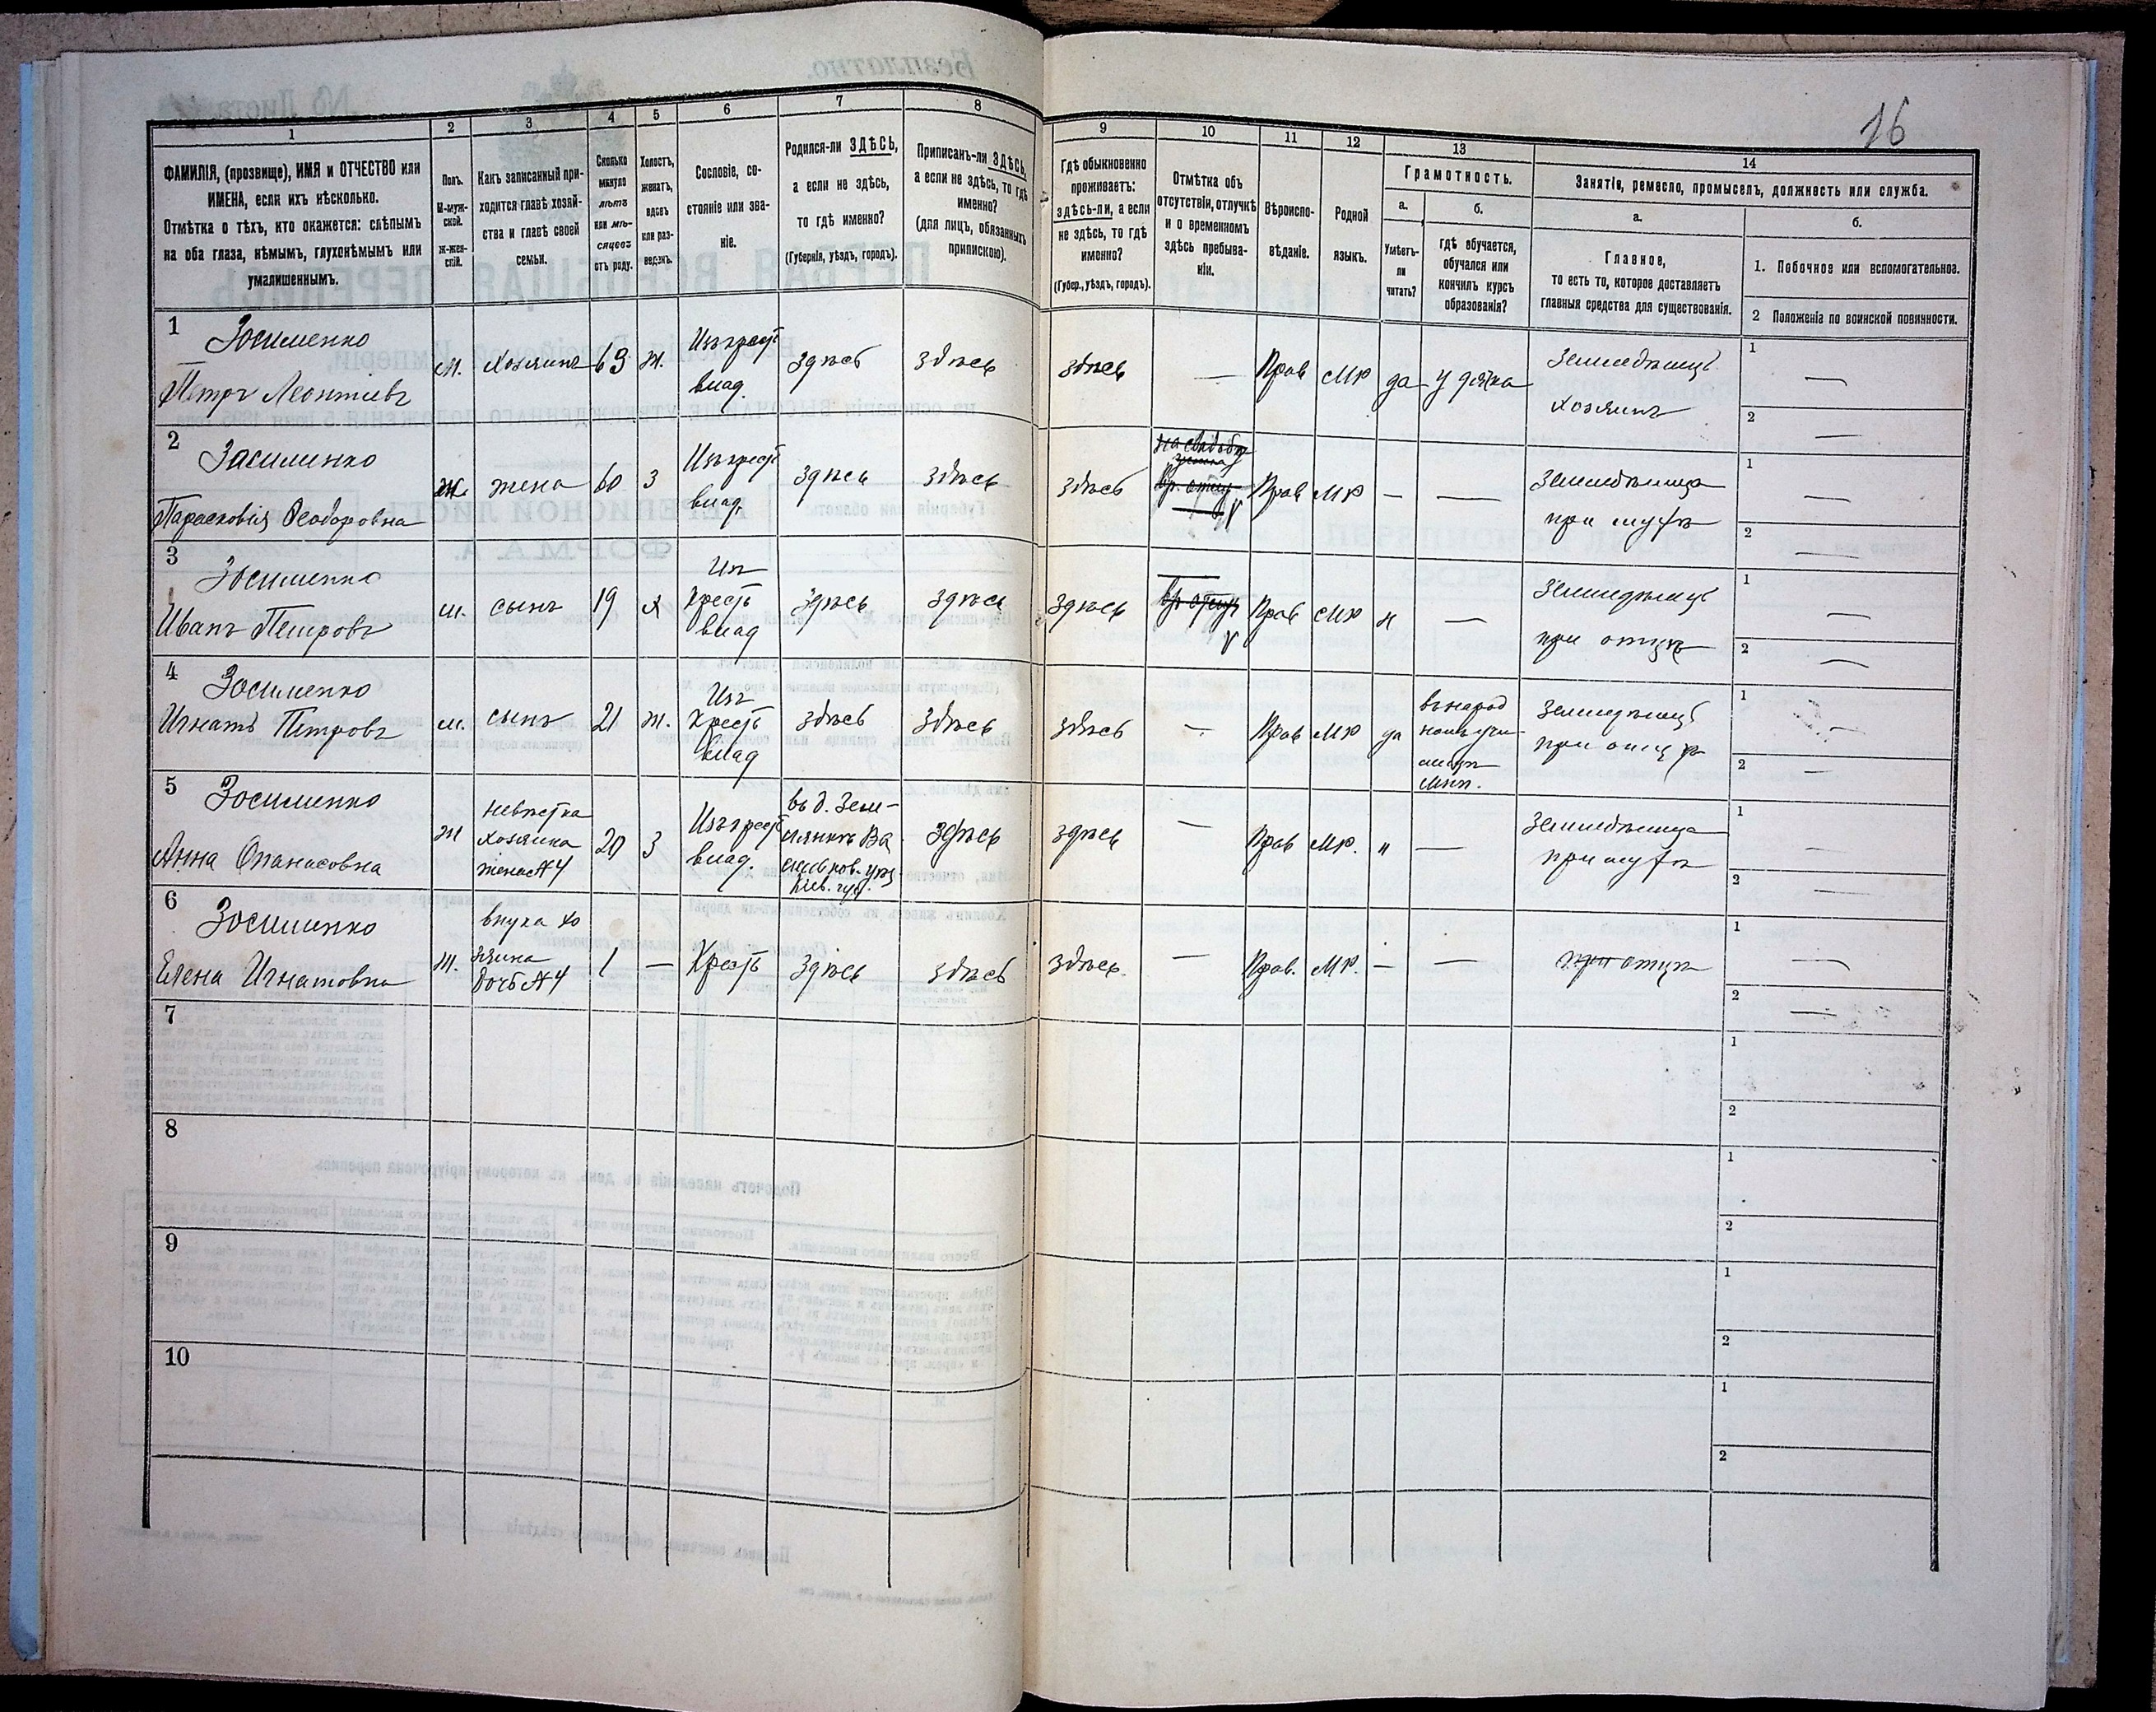 16
1 2 3 4 5 6 7 8
ФАМИЛІЯ, (прозвище), ИМЯ и ОТЧЕСТВО или ИМЕНА, если ихъ нѣсколько.
Отмѣтка о тѣхъ, кто окажется: слѣпымъ на оба глаза, нѣмымъ, глухонѣмымъ или умалишеннымъ.
Полъ.
М-муж-
ской.
Ж-жен-
скій.
Какъ записанный при-
ходится главѣ хозяй-
ства и главѣ своей
семьи.
Сколько
минуло
лѣтъ
или мѣ-
сяцевъ
отъ роду.
Холостъ,
женатъ,
вдовъ
или раз-
веденъ.
Сословіе, со-
стояніе или зва-
ніе.
Родился-ли ЗДѢСЬ,
а если не здѣсь,
то гдѣ именно?
(Губернія, уѣздъ, городъ).
Приписанъ-ли ЗДѢСЬ,
а если не здѣсь, то гдѣ
именно?
(для лицъ, обязанныхъ
припискою).
9 10 11 12 13 14
Гдѣ обыкновенно
проживаетъ:
здѣсь-ли, а если
не здѣсь, то гдѣ
именно?
(Губер., уѣздъ, городъ).
Отмѣтка объ
отсутствіи, отлучкѣ
и о временномъ
здѣсь пребыва-
ніи.
Вѣроиспо-
вѣданіе.
Родной
языкъ.
Грамотность.
а.
Умѣетъ-
ли
читать?
б.
гдѣ обучается,
обучался или
кончилъ курсъ
образованія?
Занятіе, ремесло, промыселъ, должность или служба.
а.
Главное,
то есть то, которое доставляетъ
главныя средства для существованія.
б.
1. Побочное или вспомогательное.
2 Положеніе по воинской повинности.
1 Зосименко
Петръ Леонтіевъ
м.
Хозяинъ
69
ж.
Изъ крест
влад.
здѣсь
здѣсь
здѣсь
—
Прав
МР
да
у дяка
Земледѣлецъ
хозяинъ
1 —
2 —
2 Засименко
Парасковія Ѳеодоровна
ж.
жена
60
З
Изъ крест
влад.
здѣсь
здѣсь
здѣсь
на свадьбѣ
Прав
МР
—
—
Земледѣлица
при мужѣ
1 —
2 —
3 Зосименко
Иванъ Петровъ
м.
сынъ
19
х
Из
крест
влад
здѣсь
здѣсь
здѣсь
Прав
МР
н
—
Земледѣлецъ
при отцѣ
1 —
2 —
4 Зосименко
Игнатъ Петровъ
м.
сынъ
21
ж.
Изъ
Крест
влад
здѣсь
здѣсь
здѣсь
—
Прав
МР
да
въ народ
Земледѣлецъ
при отцѣ
1 —
2 —
5 Зосименко
Анна Опанасовна
ж
невѣстка
хозяина
жена №4
20
З
Изъ крест
влад.
въ д. Зем-
лянкѣ Ва
сильков. уѣз.
Кіев. губ.
здѣсь
здѣсь
—
Прав
МР.
н
—
Земледѣлица
при мужѣ
1 —
2 —
6 Зосименко
Елена Игнатовна
ж.
внука хо
зяина
дочь №4
1
—
Крест
здѣсь
здѣсь
здѣсь
—
Прав.
МР.
—
—
при отцѣ
1 —
2 —
7
1
2
8
1
2
9
1
2
10
1
2